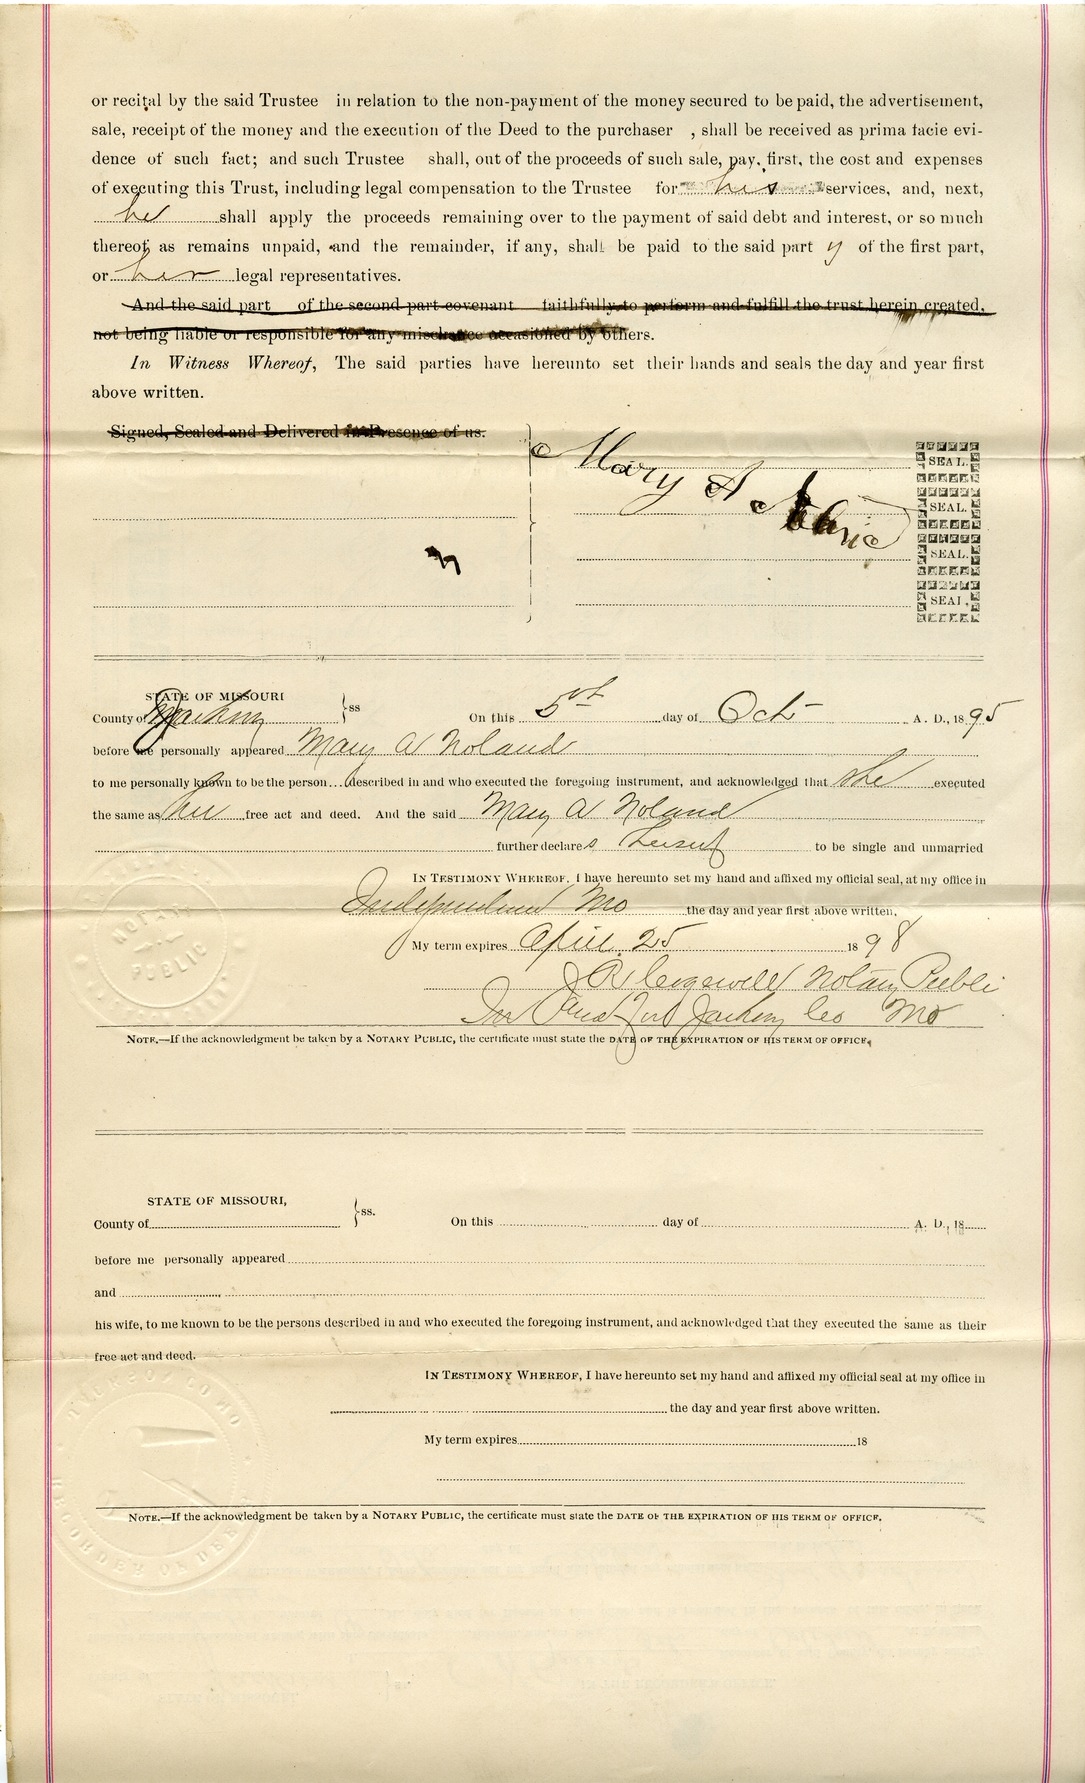 or recital by the said Trustee in relation to the non-payment of the money secured to be paid, the advertisement,
sale, receipt of the money and the execution of the Deed to the purchaser , shall be received as prima facie evi-
dence of such fact; and such Trustee shall, out of the proceeds of such sale, pay, first, the cost and expenses
of executing this Trust, including legal compensation to the Trustee for his services, and, next,
he shall apply the proceeds remaining over to the payment of said debt and interest, or so much
thereof, as remains unpaid, and the remainder, if any, shall be paid to the said part y of the first part,
or her legal representatives.
And the said part of the second part covenant faithfully to perform and fulfill the trust herein created,
not being liable or responsible for any mischance occasioned by others.
In Witness Whereof, The said parties have hereunto set their hands and seals the day and year first
above written.
Signed, Sealed and Delivered in Presence of us.
Mary A Noland
SEAL.
SEAL.
SEAL.
SEAL.
STATE OF MISSOURI
County of Jackson ss On this 5th day of Oct A. D., 1895
before me personally appeared Mary A Noland
to me personally known to be the person... described in and who executed the foregoing instrument, and acknowledged that she executed
the same as her free act and deed. And the said Mary A Noland
further declares herself to be single and unmarried
IN TESTIMONY WHEREOF, I have hereunto set my hand and affixed my official seal, at my office in
Independence Mo the day and year first above written,
My term expires April 25 1898
J R Cogswell Notary Public
In And For Jackson Co Mo
NOTE.—If the acknowledgment be taken by a NOTARY PUBLIC, the certificate must state the DATE OF THE EXPIRATION OF HIS TERM OF OFFICE.
NOTARY
PUBLIC
STATE OF MISSOURI,
County of ss. On this day of A. D., 18
before me personally appeared
and
his wife, to me known to be the persons described in and who executed the foregoing instrument, and acknowledged that they executed the same as their
free act and deed.
IN TESTIMONY WHEREOF, I have hereunto set my hand and affixed my official seal at my office in
the day and year first above written.
My term expires 18
NOTE.—If the acknowledgment be taken by a NOTARY PUBLIC, the certificate must state the DATE OF THE EXPIRATION OF HIS TERM OF OFFICE.
JACKSON CO MO
RECORDER OF DEEDS